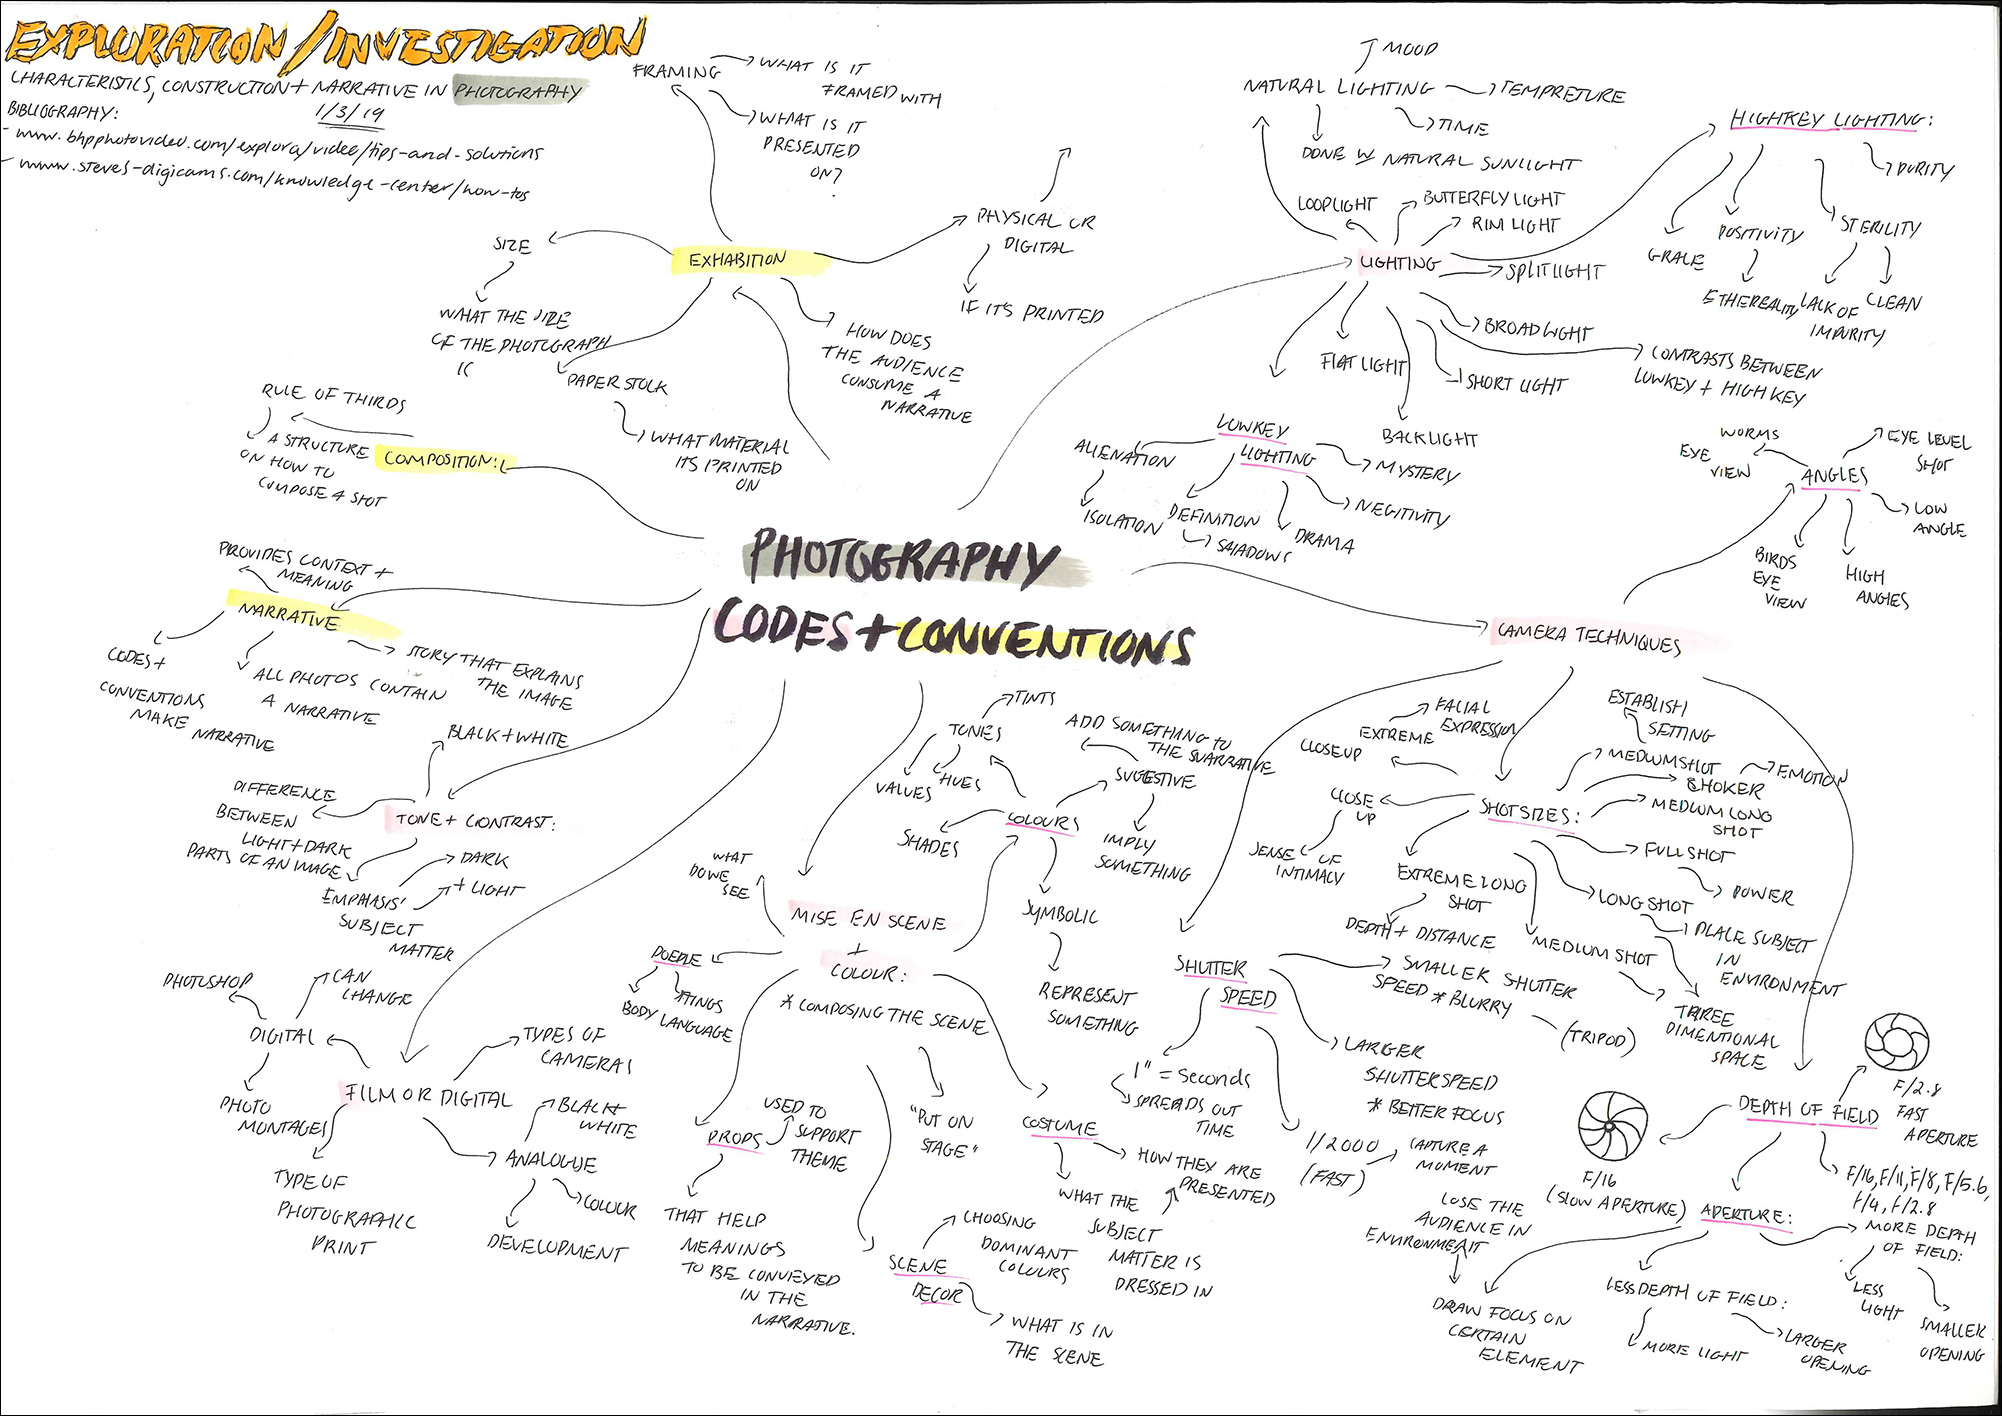 EXPLORATION/INVESTIGATION
CHARACTERISTICS, CONSTRUCTION + NARRATIVE IN PHOTOGRAPHY
1/3/19
BIBLIOGRAPHY:
- www.bhpphotovideo.com/explora/video/tips-and-solutions
- www.steves-digicams.com/knowledge-center/how-tos
PHOTOGRAPHY
CODES + CONVENTIONS
EXHABITION
FRAMING
WHAT IS IT
FRAMED WITH
WHAT IS IT
PRESENTED
ON?
PHYSICAL OR
DIGITAL
IF IT'S PRINTED
SIZE
WHAT THE SIZE
OF THE PHOTOGRAPH
IS
PAPER STOCK
WHAT MATERIAL
ITS PRINTED
ON
HOW DOES
THE AUDIENCE
CONSUME A
NARRATIVE
COMPOSITION:
RULE OF THIRDS
A STRUCTURE
ON HOW TO
COMPOSE A SHOT
NARRATIVE
PROVIDES CONTEXT +
MEANING
CODES +
CONVENTIONS
MAKE NARRATIVE
ALL PHOTOS CONTAIN
A NARRATIVE
STORY THAT EXPLAINS
THE IMAGE
TONE + CONTRAST:
BLACK + WHITE
DIFFERENCE
BETWEEN
LIGHT + DARK
PARTS OF AN IMAGE
EMPHASIS'
SUBJECT
MATTER
DARK
+ LIGHT
FILM OR DIGITAL
DIGITAL
PHOTOSHOP
CAN
CHANGE
PHOTO
MONTAGES
TYPES OF
CAMERAS
TYPE OF
PHOTOGRAPHIC
PRINT
ANALOGUE
BLACK +
WHITE
COLOUR
DEVELOPMENT
MISE EN SCENE
+
COLOUR:
* COMPOSING THE SCENE
"PUT ON
STAGE"
WHAT
DO WE
SEE
PEOPLE
BODY LANGUAGE
PROPS
USED TO
SUPPORT
THEME
THAT HELP
MEANINGS
TO BE CONVEYED
IN THE
NARRATIVE.
SCENE
DECOR
CHOOSING
DOMINANT
COLOURS
WHAT IS IN
THE SCENE
COSTUME
HOW THEY ARE
PRESENTED
WHAT THE
SUBJECT
MATTER IS
DRESSED IN
COLOURS
TONES
TINTS
VALUES
HUES
SHADES
SUGGESTIVE
ADD SOMETHING TO
THE NARRATIVE
IMPLY
SOMETHING
SYMBOLIC
REPRESENT
SOMETHING
LIGHTING
NATURAL LIGHTING
MOOD
TEMPRETURE
TIME
DONE W NATURAL SUNLIGHT
LOOPLIGHT
BUTTERFLY LIGHT
RIM LIGHT
SPLITLIGHT
BROADLIGHT
SHORT LIGHT
FLAT LIGHT
BACKLIGHT
CONTRASTS BETWEEN
LOWKEY + HIGH KEY
HIGHKEY LIGHTING:
PURITY
STERILITY
LACK OF
IMPURITY
CLEAN
POSITIVITY
ETHEREALITY
GRACE
LOWKEY
LIGHTING
ALIENATION
ISOLATION
DEFINITION
SHADOWS
DRAMA
NEGITIVITY
MYSTERY
CAMERA TECHNIQUES
ANGLES
WORMS
EYE
VIEW
EYE LEVEL
SHOT
LOW
ANGLE
HIGH
ANGLES
BIRDS
EYE
VIEW
SHOT SIZES:
EXTREME
CLOSEUP
FACIAL
EXPRESSION
CLOSE
UP
SENSE OF
INTIMACY
ESTABLISH
SETTING
MEDIUMSHOT
CHOKER
EMOTION
MEDIUM LONG
SHOT
FULLSHOT
POWER
LONGSHOT
PLACE SUBJECT
IN
ENVIRONMENT
MEDIUM SHOT
THREE
DIMENTIONAL
SPACE
EXTREME LONG
SHOT
DEPTH + DISTANCE
SHUTTER
SPEED
SMALLER SHUTTER
SPEED * BLURRY
(TRIPOD)
LARGER
SHUTTERSPEED
* BETTER FOCUS
1" = seconds
SPREADS OUT
TIME
1/2000
(FAST)
CAPTURE A
MOMENT
DEPTH OF FIELD
F/2.8
FAST
APERTURE
F/16
(SLOW APERTURE)
F/16, F/11, F/8, F/5.6,
F/4, F/2.8
APERTURE:
MORE DEPTH
OF FIELD:
LESS
LIGHT
SMALLER
OPENING
LESS DEPTH OF FIELD:
MORE LIGHT
LARGER
OPENING
LOSE THE
AUDIENCE IN
ENVIRONMENT
DRAW FOCUS ON
CERTAIN
ELEMENT